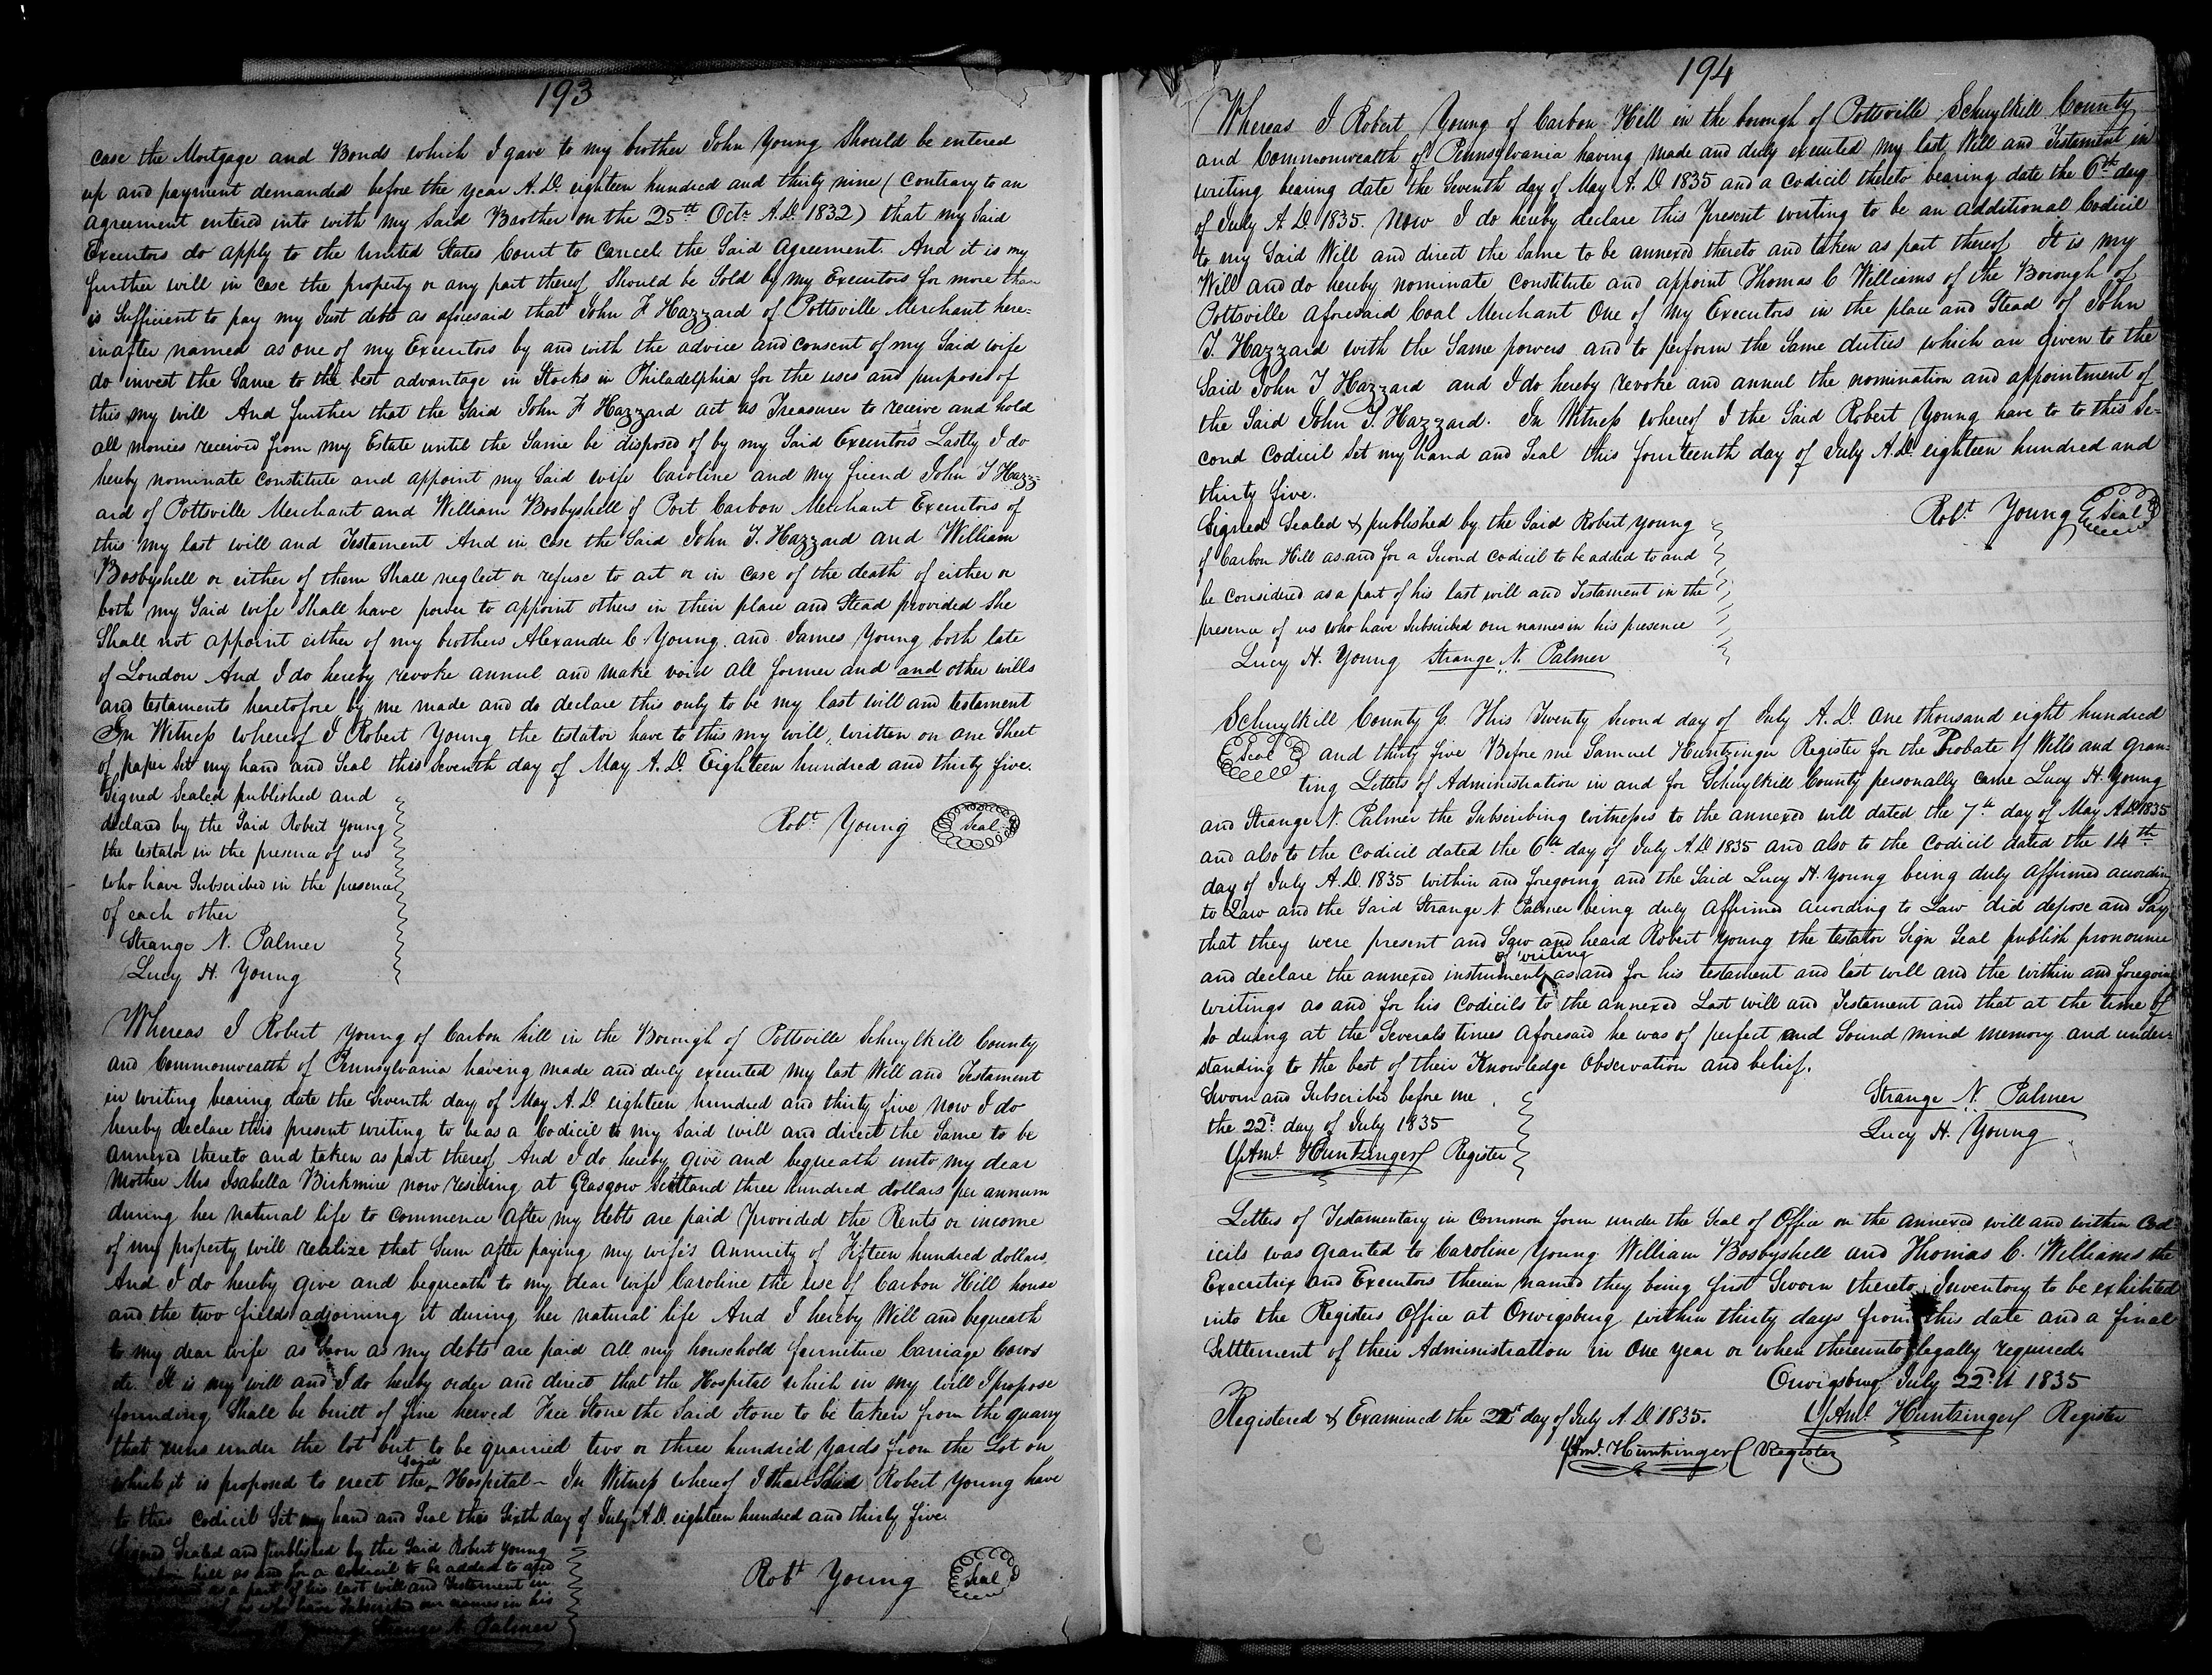 193
case the Mortgage and Bonds which I gave to my brother John Young Should be entered
up and payment demanded before the year A.D. eighteen hundred and thirty nine (Contrary to an
agreement entered into with my Said Brother on the 25th Octr A.D. 1832) that my Said
Executors do apply to the United States Court to Cancel the Said Agreement. And it is my
further will in Case the property or any part thereof Should be Sold by my Executors for more than
is Sufficient to pay my Just debts as aforesaid that John F Hazzard of Pottsville Merchant here=
inafter named as one of my Executors by and with the advice and consent of my Said wife
do invest the Same to the best advantage in Stocks in Philadelphia for the uses and purposes of
this my will And further that the Said John F Hazzard act as Treasurer to receive and hold
all monies received from my Estate until the Same be disposed of by my Said Executors Lastly I do
hereby nominate Constitute and appoint my Said wife Caroline and my friend John T Hazz-
ard of Pottsville Merchant and William Bosbyshell of Port Carbon Merchant Executors of
this my last will and Testament And in Case the Said John T. Hazzard and William
Bosbyshell or either of them Shall neglect or refuse to act or in case of the death of either or
both my Said wife Shall have power to appoint others in their place and Stead provided She
Shall not appoint either of my brothers Alexander C Young and James Young both late
of London And I do hereby revoke annul and make void all former and and other wills
and testaments heretofore by me made and do declare this only to be my last will and testament
In Witness whereof I Robert Young the testator have to this my will, written on one Sheet
of paper Set my hand and Seal this Seventh day of May A.D. Eighteen hundred and thirty five.
Signed Sealed published and
declared by the Said Robert Young
the testator in the presence of us
who have Subscribed in the presence
of each other
Robt Young Seal
Strange N. Palmer
Lucy H. Young
Whereas I Robert Young of Carbon hill in the Borough of Pottsville Schuylkill County
and Commonwealth of Pennsylvania having made and duly executed my last Will and Testament
in writing bearing date the Seventh day of May A.D. eighteen hundred and thirty five Now I do
hereby declare this present writing to be as a Codicil to my Said will and direct the Same to be
annexed thereto and taken as part thereof And I do hereby give and bequeath unto my dear
Mother Mrs Isabella Birkmire now residing at Glasgow Scotland three hundred dollars per annum
during her natural life to Commence after my debts are paid provided the Rents or income
of my property will realize that Sum after paying my wife's Annuity of Fifteen hundred dollars
And I do hereby give and bequeath to my dear wife Caroline the use of Carbon Hill house
and the two fields adjoining it during her natural life And I hereby Will and bequeath
to my dear wife as Soon as my debts are paid all my household furniture Carriage Cows
&c. It is my will and I do hereby order and direct that the Hospital which in my will I propose
founding Shall be built of fine hewed Free Stone the Said Stone to be taken from the quarry
that runs under the lot but to be quarried two or three hundred Yards from the Lot on
which it is proposed to erect the said Hospital - In Witness whereof I the Said Robert Young have
to this Codicil Set my hand and Seal this Sixth day of July A.D. eighteen hundred and thirty five.
Signed Sealed and published by the Said Robert Young
hill as and for a Codicil to be added to and
as a part of his last will and Testament in
who have Subscribed our names in his
Robt Young Seal
Young Strange N. Palmer
194
Whereas I Robert Young of Carbon Hill in the borough of Pottsville Schuylkill County
and Commonwealth of Pennsylvania having made and duly executed my last Will and Testament in
writing bearing date the Seventh day of May A.D. 1835 and a Codicil thereto bearing date the 6th day
of July A.D. 1835. Now I do hereby declare this Present writing to be an additional Codicil
to my Said Will and direct the Same to be annexed thereto and taken as part thereof It is my
Will and do hereby nominate Constitute and appoint Thomas C Williams of the Borough of
Pottsville aforesaid Coal Merchant One of my Executors in the place and Stead of John
T. Hazzard with the Same powers and to perform the Same duties which an given to the
Said John T Hazzard and I do hereby revoke and annul the nomination and appointment of
the Said John T. Hazzard. In Witness whereof I the Said Robert Young have to to this Se=
cond Codicil Set my hand and Seal this fourteenth day of July A.D. eighteen hundred and
thirty five.
Robt Young Seal
Signed Sealed & published by the Said Robert Young
of Carbon Hill as and for a Second Codicil to be added to and
be Considered as a part of his last will and Testament in the
presence of us who have Subscribed our names in his presence
Lucy H. Young Strange N. Palmer
Schuylkill County Ss. This Twenty Second day of July A.D. One thousand eight hundred
Seal and thirty five Before me Samuel Huntzinger Register for the Probate of Wills and Gran=
ting Letters of Administration in and for Schuylkill County personally came Lucy H. Young
and Strange N. Palmer the Subscribing witnesses to the annexed will dated the 7th day of May A.D. 1835
and also to the Codicil dated the 6th day of July A.D. 1835 and also to the Codicil dated the 14th
day of July A.D. 1835 within and foregoing and the Said Lucy H. Young being duly affirmed according
to Law and the Said Strange N. Palmer being duly Affirmed According to Law did depose and Say
that they were present and Saw and heard Robert Young the testator Sign Seal publish pronounce
and declare the annexed instrument of writing as and for his testament and last will and the within and foregoing
writings as and for his Codicils to the annexed Last will and Testament and that at the time of
So doing at the Severals times aforesaid he was of perfect and Sound mind memory and under=
standing to the best of their Knowledge Observation and belief.
Sworn and Subscribed before me
the 22d day of July 1835
Saml Huntzinger Register
Strange N. Palmer
Lucy H. Young
Letters of Testamentary in Common form under the Seal of Office on the annexed will and within Cod=
icils was granted to Caroline Young William Bosbyshell and Thomas C. Williams the
Executrix and Executors therein named they being first Sworn thereto, Inventory to be exhibited
into the Registers Office at Orwigsburg within thirty days from this date and a final
Settlement of their Administration in One year or when thereunto legally required.
Orwigsburg July 22d A 1835
Saml Huntzinger Register
Registered & Examined the 22d day of July A.D. 1835.
Saml. Huntzinger Register